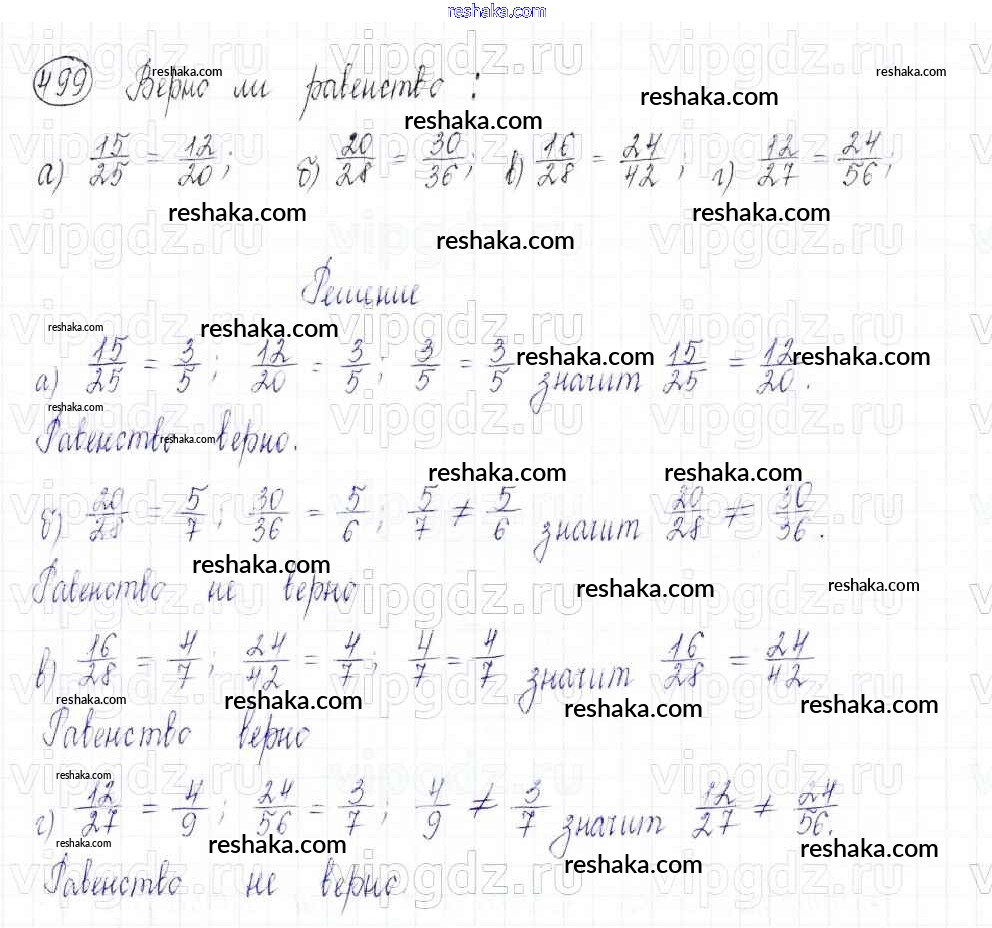 reshaka.com
499 Верно ли равенство:
а) 15/25 = 12/20; б) 20/28 = 30/36; в) 16/28 = 24/42; г) 12/27 = 24/56;
Решение
а) 15/25 = 3/5; 12/20 = 3/5; 3/5 = 3/5 значит 15/25 = 12/20.
Равенство верно.
б) 20/28 = 5/7; 30/36 = 5/6; 5/7 ≠ 5/6 значит 20/28 ≠ 30/36.
Равенство не верно
в) 16/28 = 4/7; 24/42 = 4/7; 4/7 = 4/7 значит 16/28 = 24/42
Равенство верно
г) 12/27 = 4/9; 24/56 = 3/7; 4/9 ≠ 3/7 значит 12/27 ≠ 24/56.
Равенство не верно